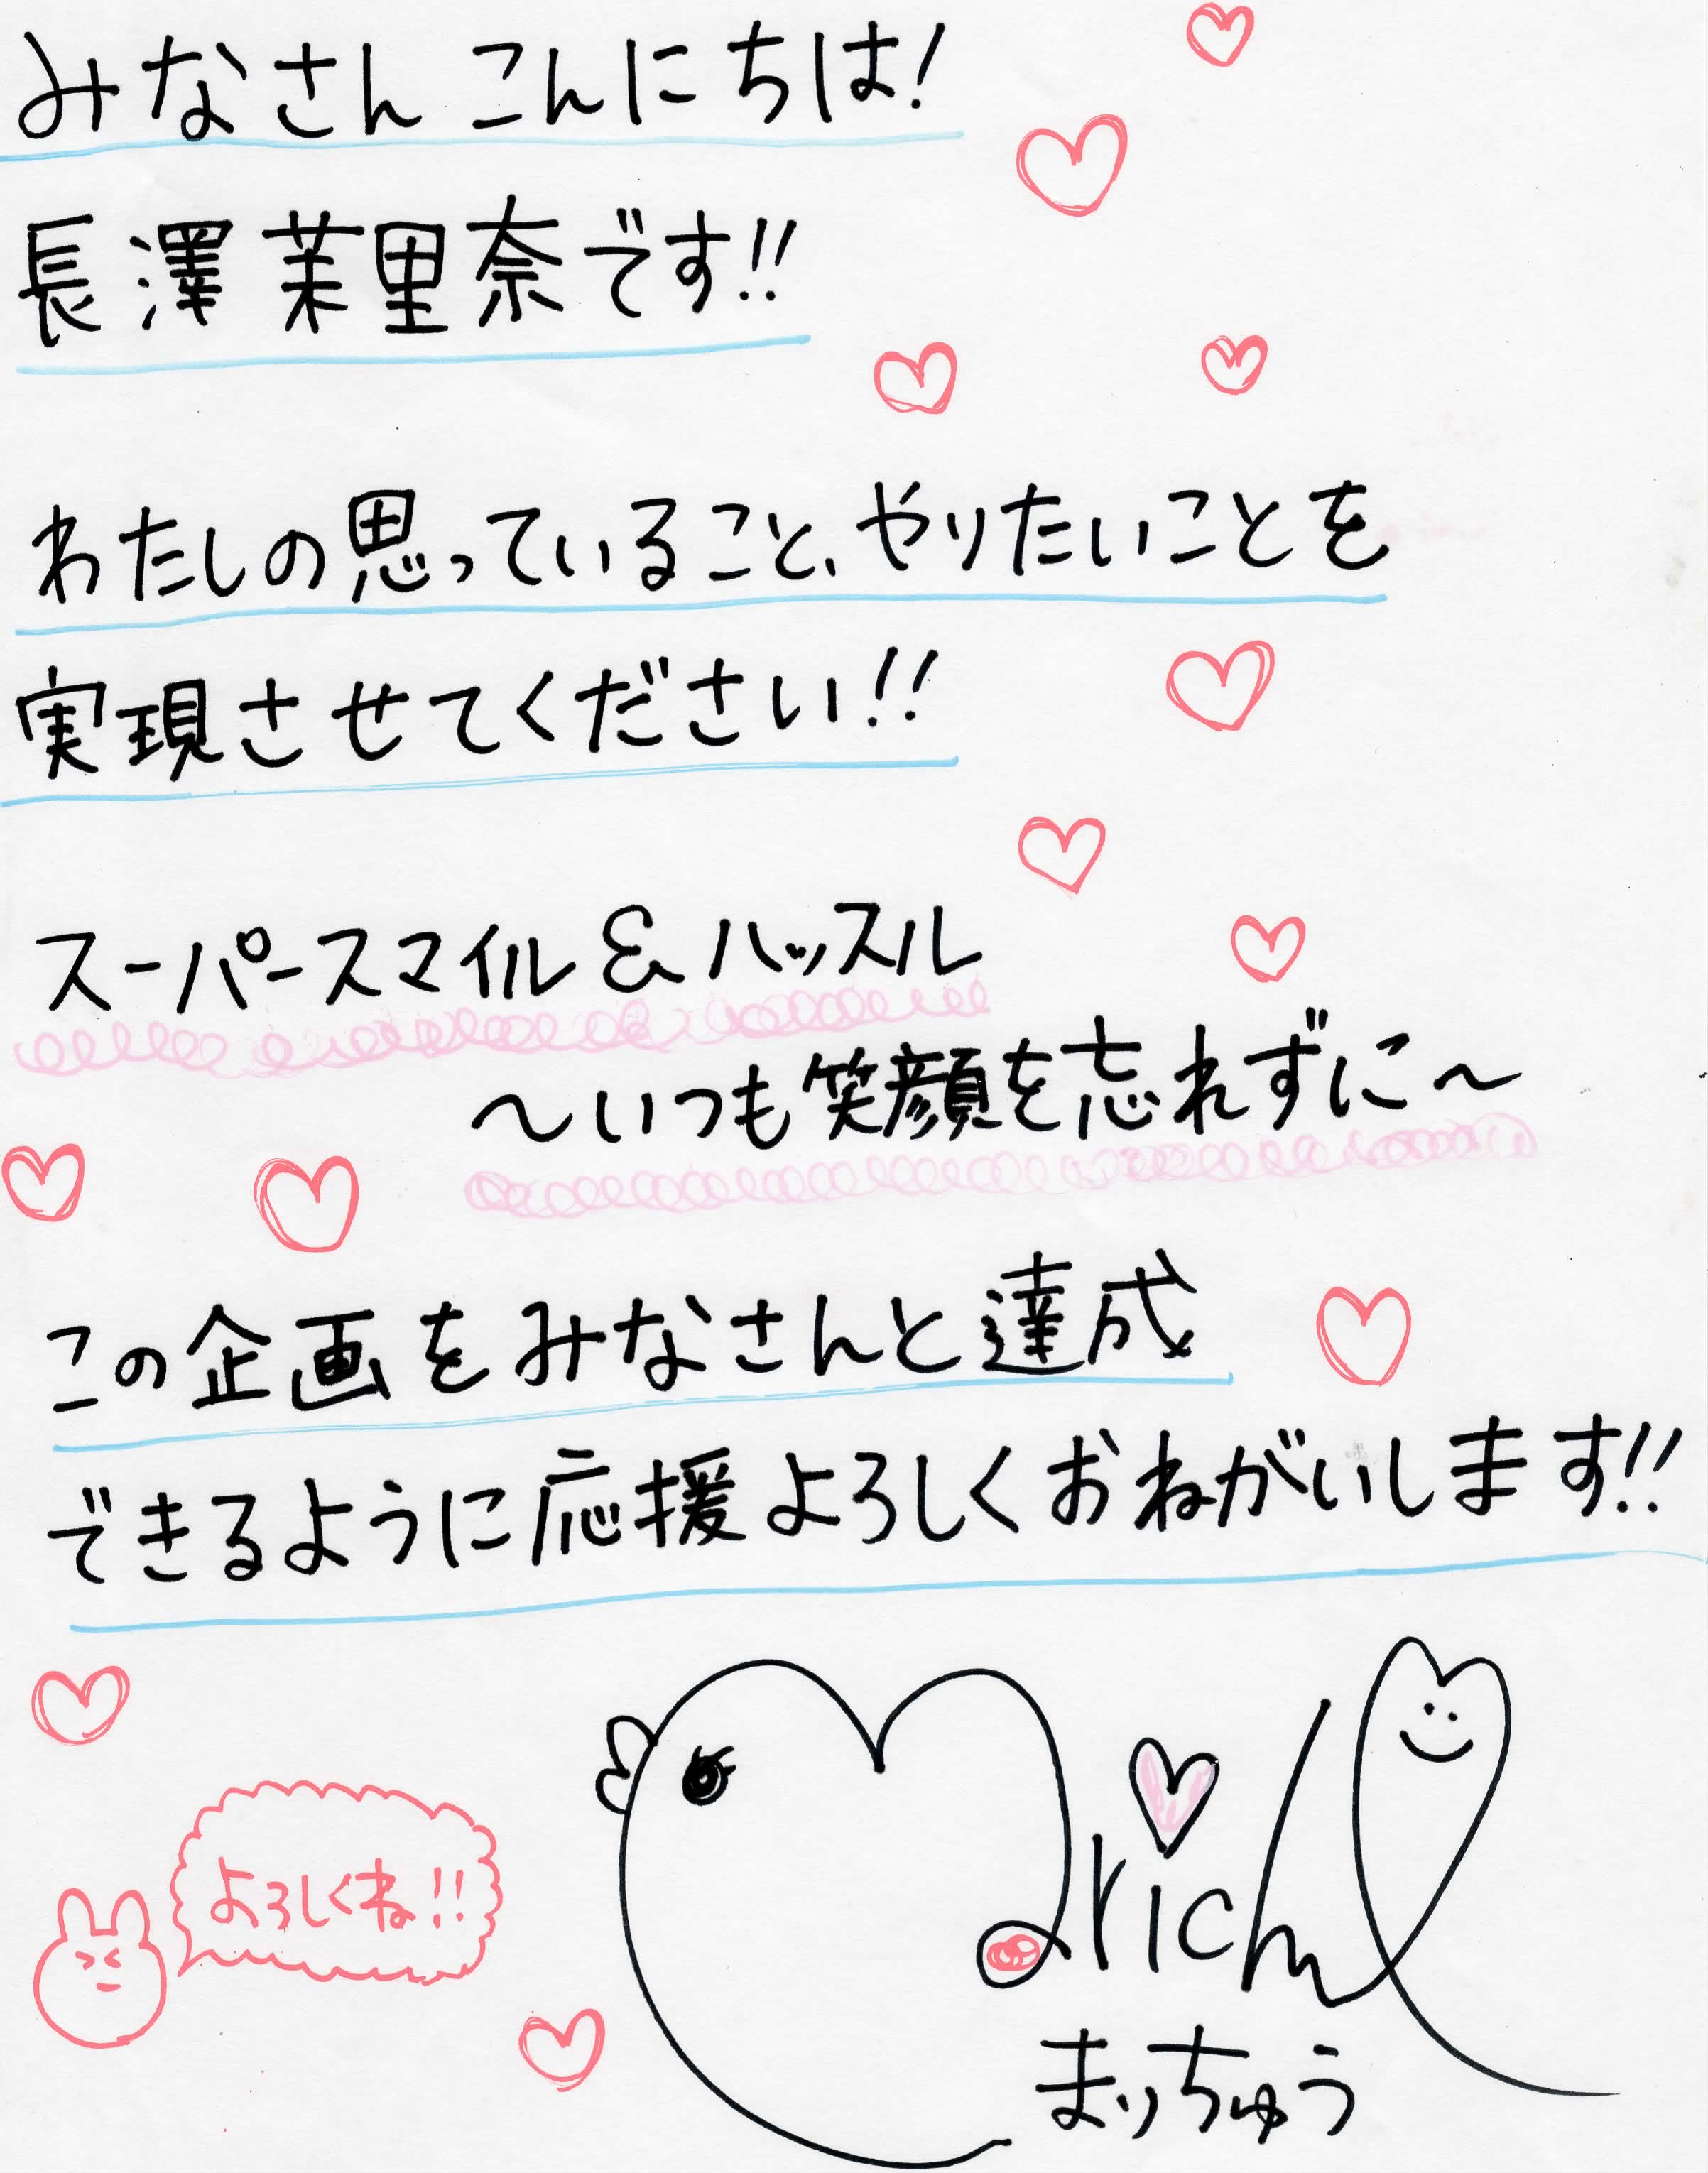 みなさん こんにちは!
長澤 茉里奈です!!
わたしの思っていること、やりたいことを
実現させてください!!
スーパースマイル&ハッスル
〜いつも笑顔を忘れずに〜
この企画をみなさんと達成
できるように応援よろしくおねがいします!!
よろしくね!!
まりちゅう